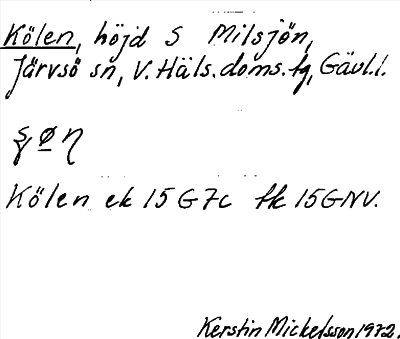 Kölen, höjd S Milsjön,
Järvsö sn, V. Häls. doms. tg, Gävl.l.
Kölen ek 15G7c tk 15GNV.
Kerstin Mickelsson 1972.